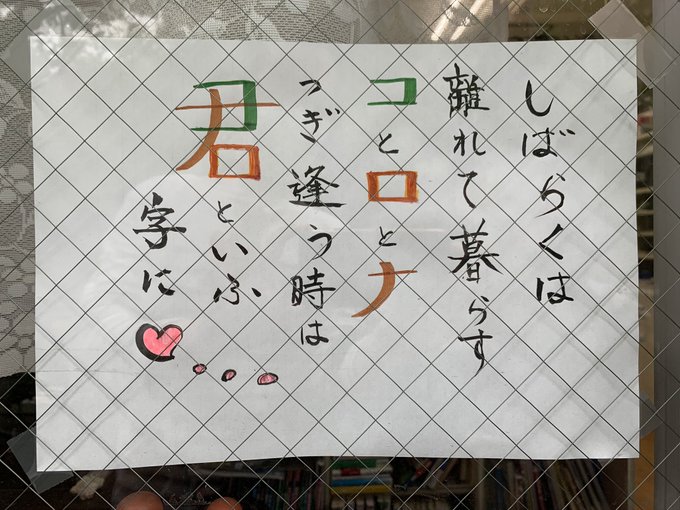 しばらくは
離れて暮らす
コとロとナ
つぎ逢う時は
君といふ
字に